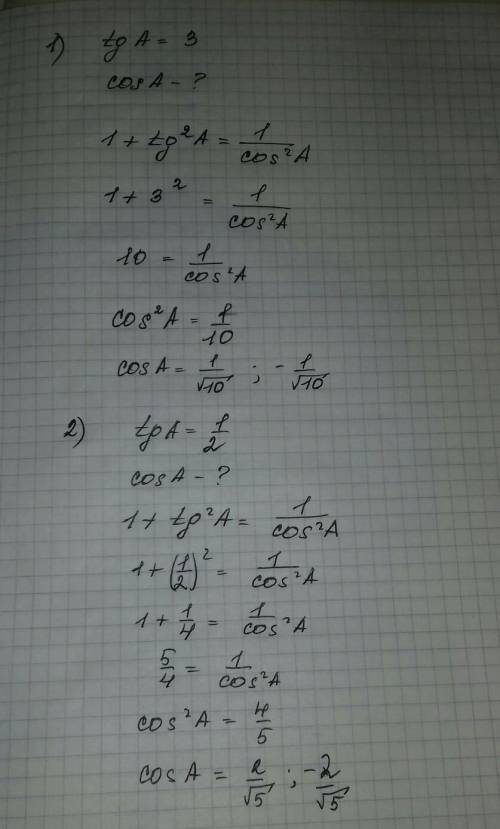 1) tg A = 3
cos A - ?
1 + tg²A = 1/cos²A
1 + 3² = 1/cos²A
10 = 1/cos²A
cos²A = 1/10
cos A = 1/√10 ; - 1/√10
2) tg A = 1/2
cos A - ?
1 + tg²A = 1/cos²A
1 + (1/2)² = 1/cos²A
1 + 1/4 = 1/cos²A
5/4 = 1/cos²A
cos²A = 4/5
cos A = 2/√5 ; -2/√5